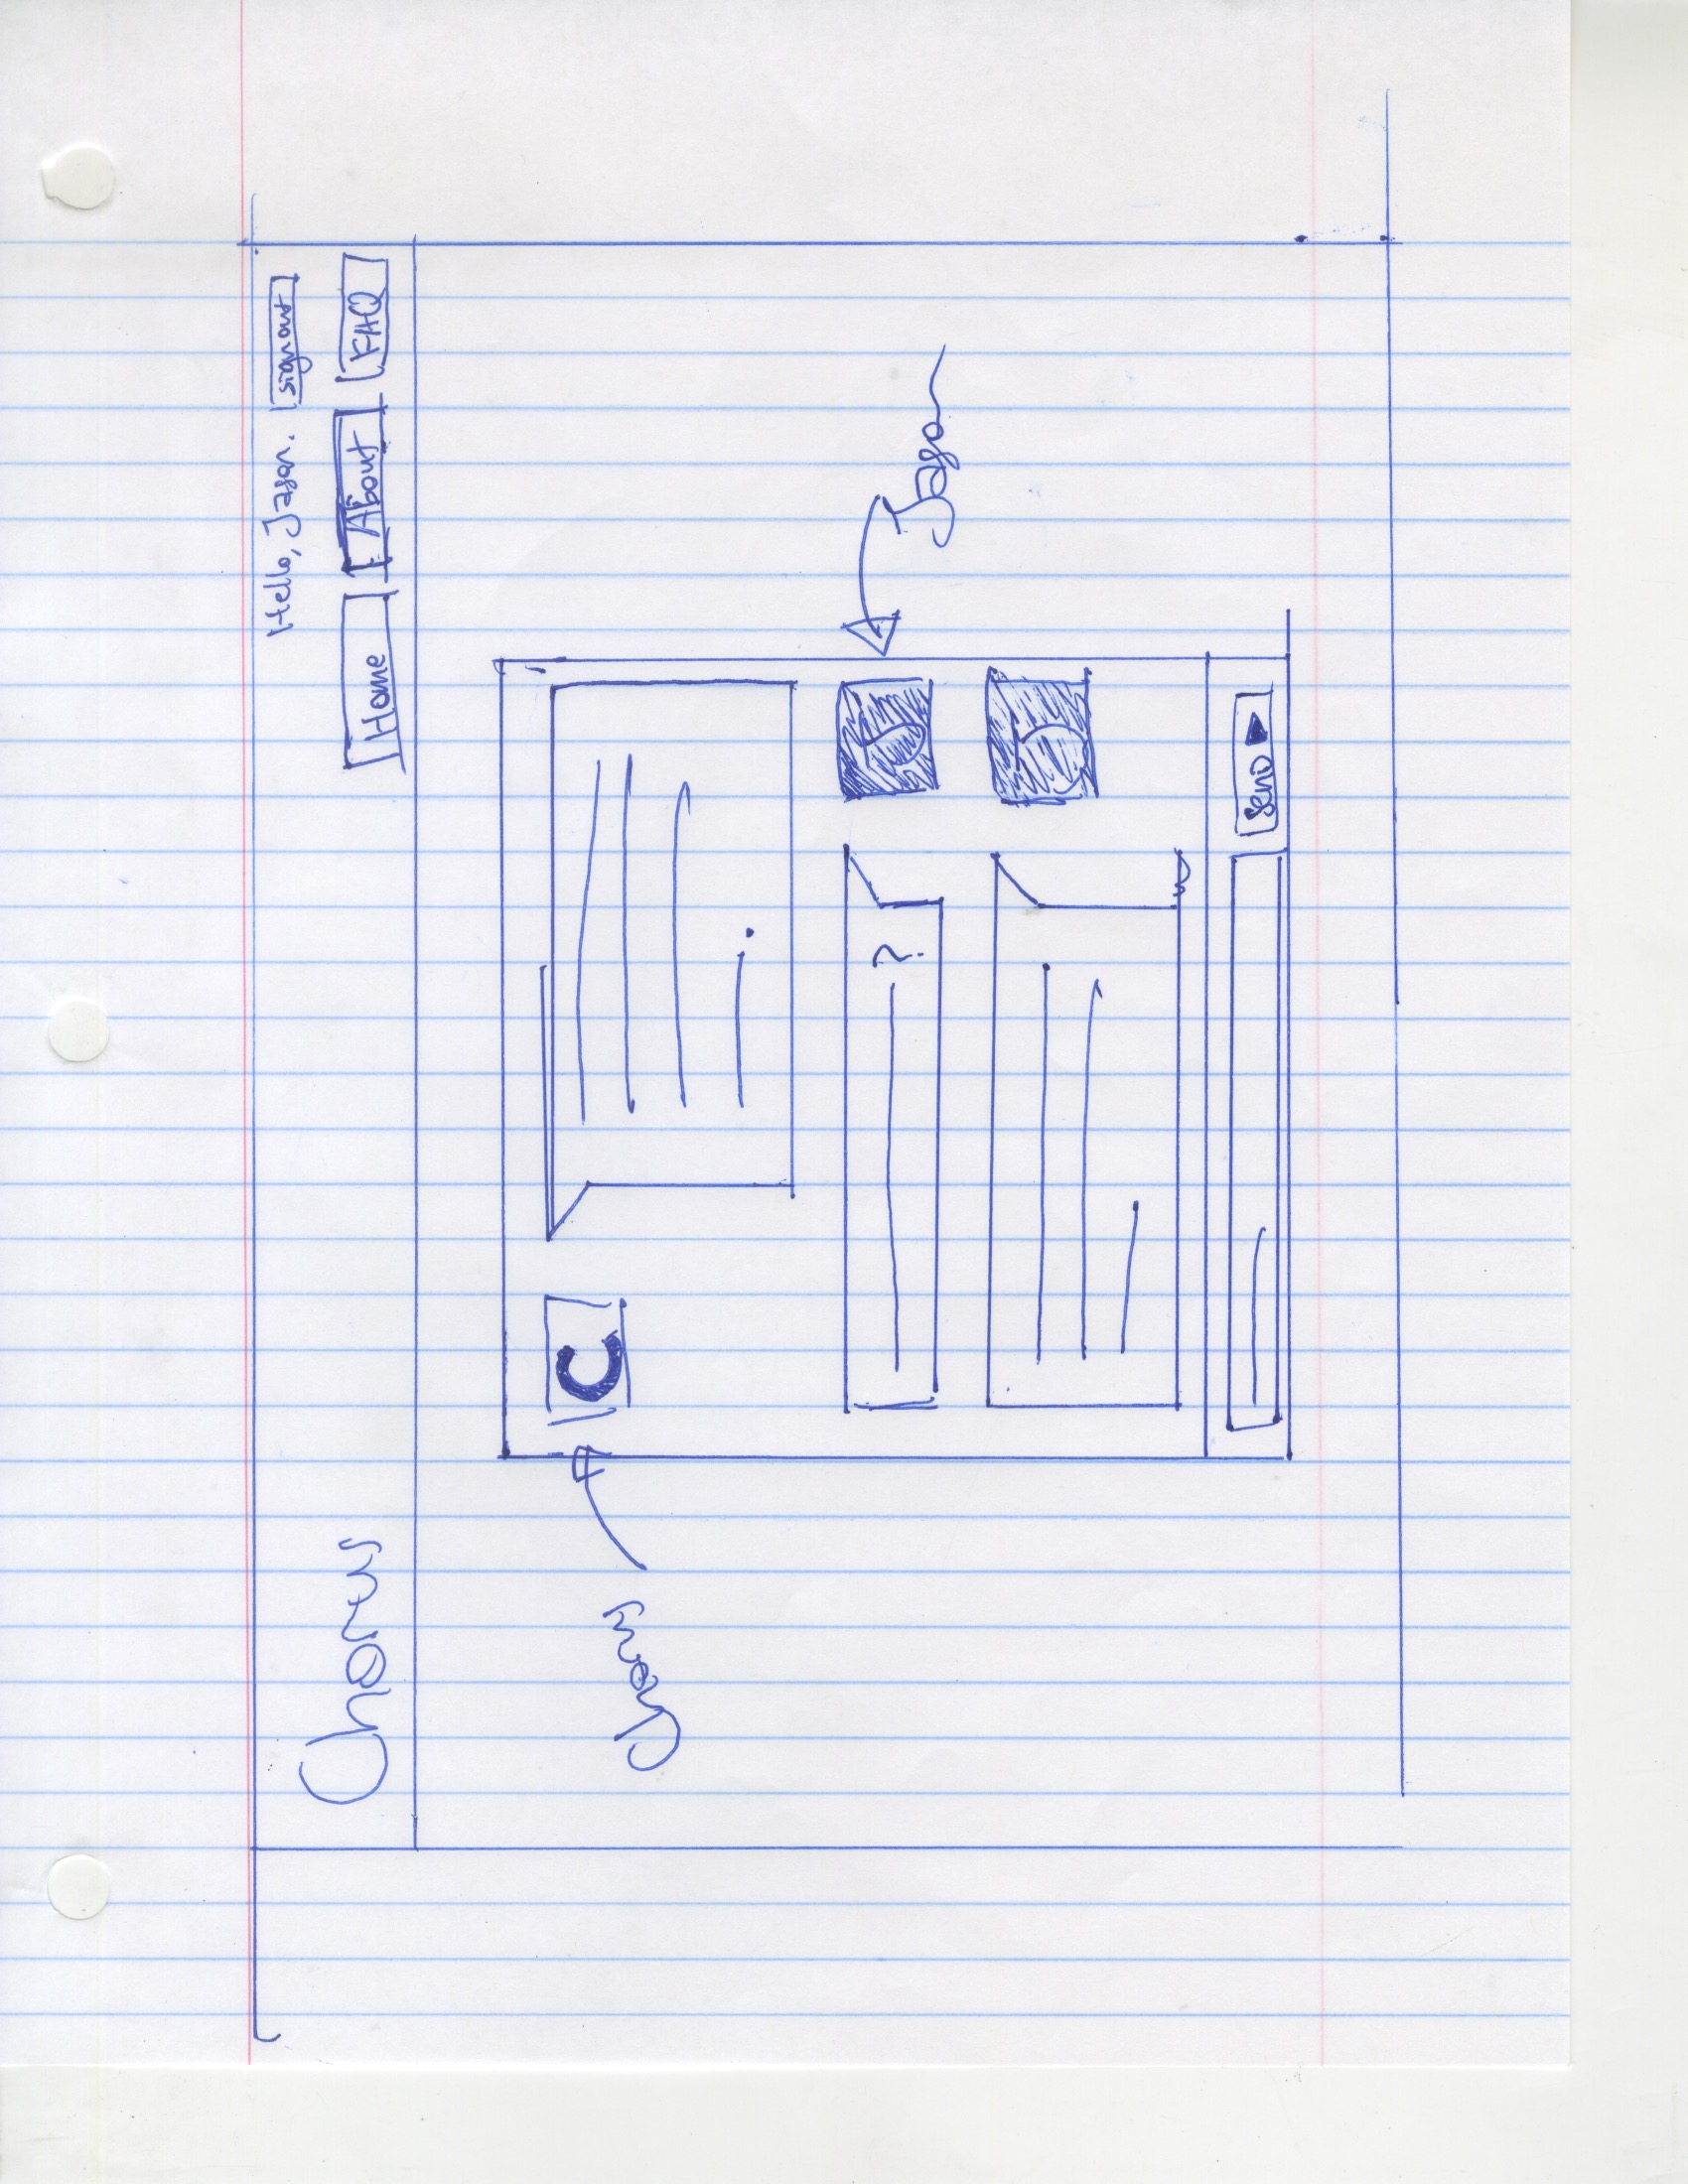 Hello, Jason. sign out
Chorus
Home About FAQ
C
Chorus
?
J
Jason
J
Send